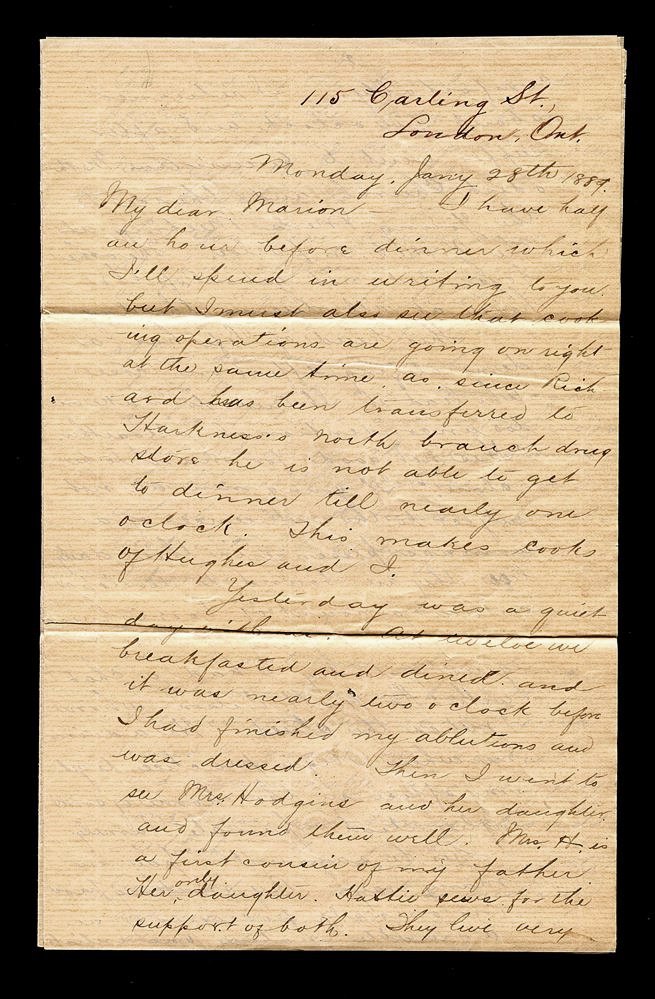 115 Carling St.,
London, Ont.
Monday, Jany 28th 1889.
My dear Marion — I have half
an hour before dinner which
I'll spend in writing to you.
but I must also see that cook
ing operations are going on right
at the same time, as, since Rich
ard has been transferred to
Harkness's north branch drug
store he is not able to get
to dinner till nearly one
o'clock. This makes cooks
of Hughes and I.
Yesterday was a quiet
day with us. At twelve we
breakfasted and dined and
it was nearly two o'clock before
I had finished my ablutions and
was dressed. Then I went to
see Mrs. Hodgins and her daughter.
and found them well. Mrs. H. is
a first cousin of my father.
Her only daughter. Hattie sews for the
support of both. They live very